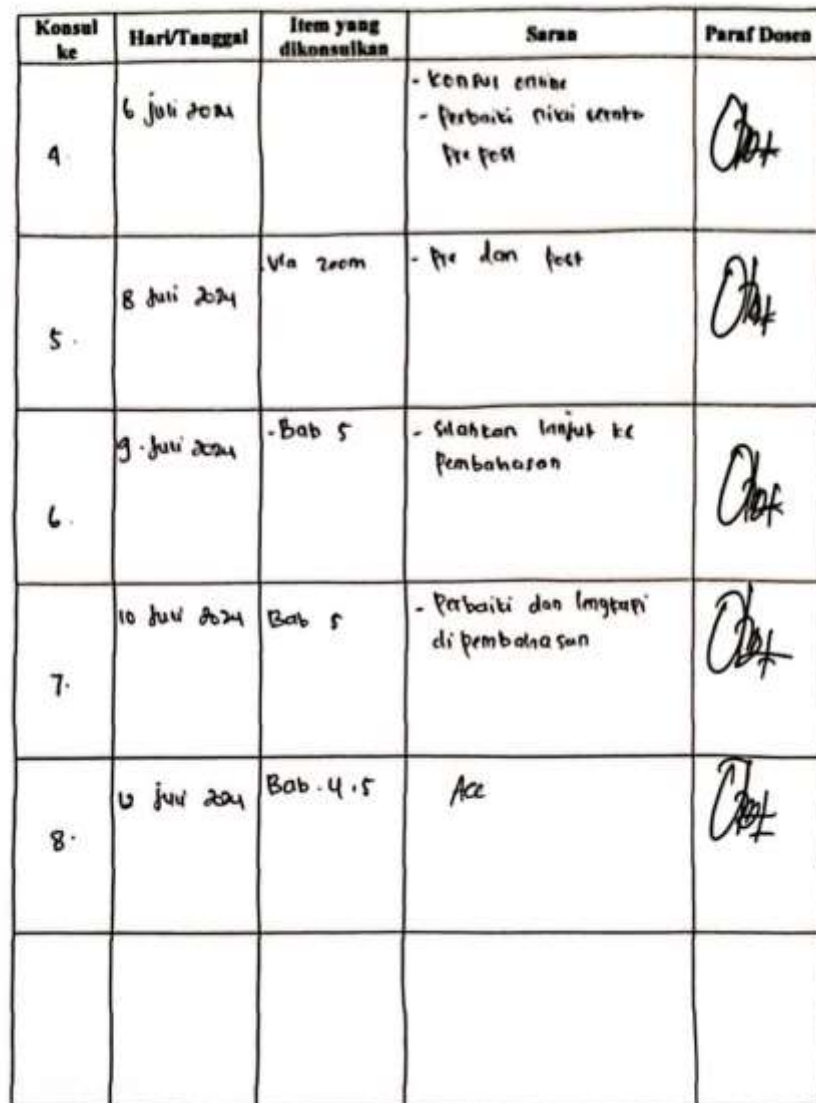 Konsul ke Hari/Tanggal Item yang dikonsulkan Saran Paraf Dosen
4. 6 juli 2024 - Konsul online
- Perbaiki nilai
Pre post
5. 8 Juli 2024 Via zoom - Pre dan post
6. 9. Juli 2024 - Bab 5 - Silahkan lanjut ke
Pembahasan
7. 10 Juli 2024 Bab 5 - Perbaiki dan lengkapi
di pembahasan
8. juli 2024 Bab. 4.5 Acc